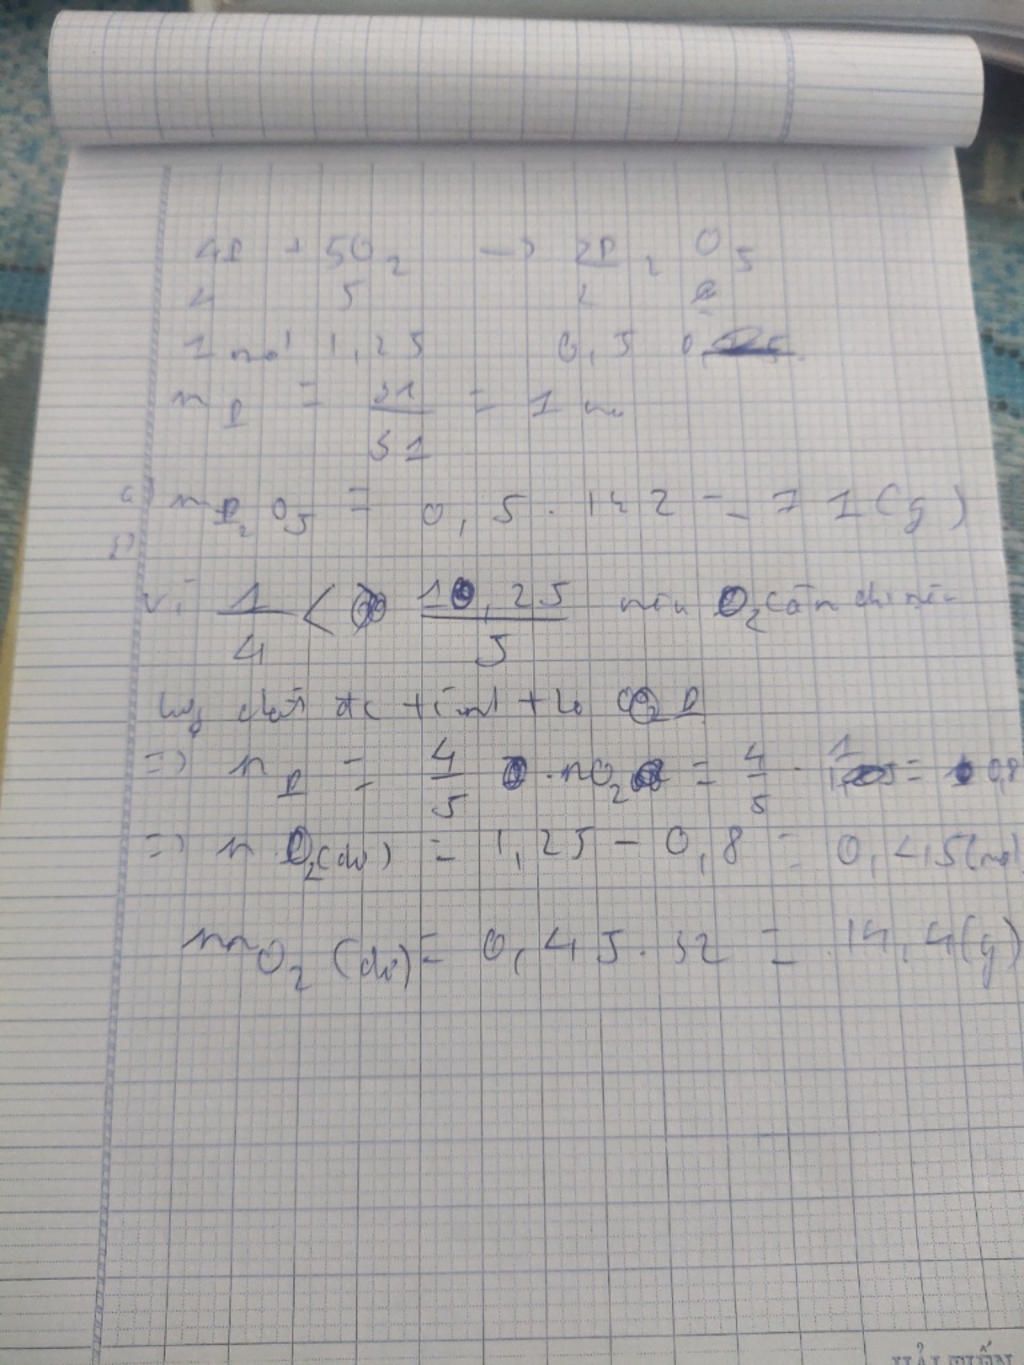 4P + 5O₂ → 2P₂O₅
4 5 2
1 mol 1,25 0,5 0,
nP = 31/31 = 1 mo
a) mP₂O₅ = 0,5 . 142 = 71(g)
b)
Vì 1/4 < 10,25/5 nên O₂ còn dư nên
lượng chất đc tính theo P
=> nP = 4/5 . nO₂ = 4/5 . 1 = 0,8
=> nO₂(dư) = 1,25 - 0,8 = 0,45(mol
mO₂ (dư) = 0,45.32 = 14,4(g)